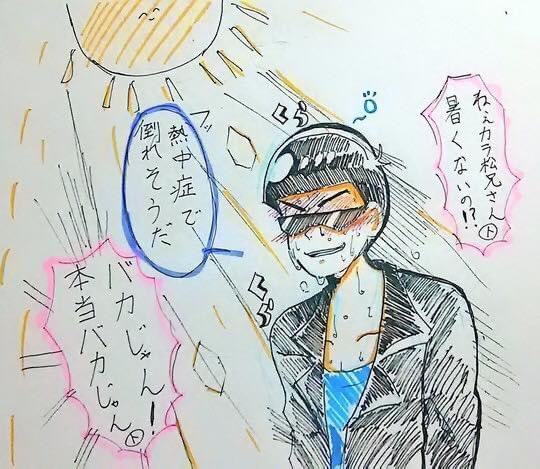 ねぇカラ松兄さん
暑くないの!?
ト
くら
フッ
熱中症で
倒れそうだ
くら
バカじゃん!
本当バカじゃん
ト